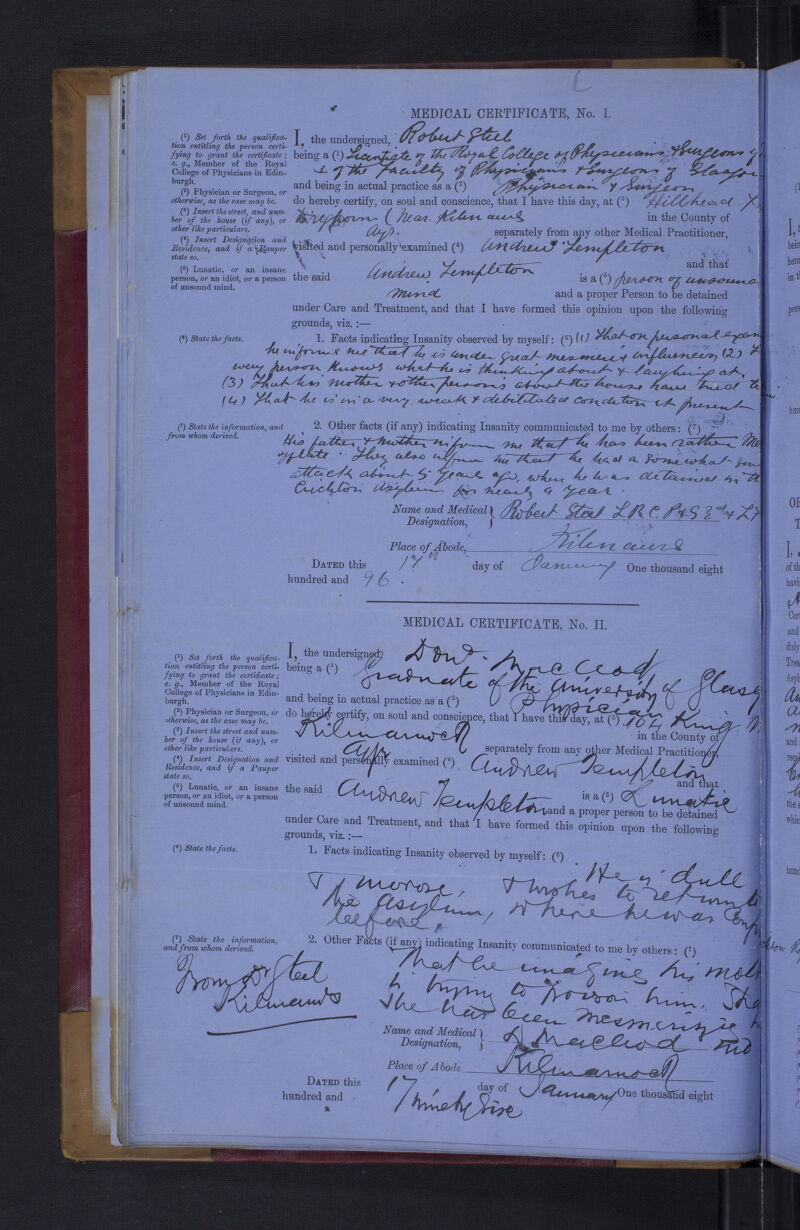 MEDICAL CERTIFICATE, No. I.
(¹) Set forth the qualifica-
tion entitling the person certi-
fying to grant the certificate;
e. g., Member of the Royal
College of Physicians in Edin-
burgh.
(²) Physician or Surgeon, or
otherwise, as the case may be.
(³) Insert the street, and num-
ber of the house (if any), or
other like particulars.
(⁴) Insert Designation and
Residence, and if a Pauper
state so.
(⁵) Lunatic, or an insane
person, or an idiot, or a person
of unsound mind.
I, the undersigned, Robert Steel
being a (¹) Licentiate of the Royal College of Physicians & Surgeons
& of the Faculty of Physicians & Surgeons of Glasgow
and being in actual practice as a (²) Physician & Surgeon
do hereby certify, on soul and conscience, that I have this day, at (³) Hillhead
(Near Kilmaurs in the County of
Ayr. separately from any other Medical Practitioner,
visited and personally examined (⁴) Andrew Templeton
and that
the said Andrew Templeton is a (⁵) person of unsound
mind and a proper Person to be detained
under Care and Treatment, and that I have formed this opinion upon the following
grounds, viz. :—
(⁶) State the facts.
1. Facts indicating Insanity observed by myself: (⁶) (1) That on personal exam
he informs me that he is under great mesmeric influences (2)
every person knows what he is thinking about & laughing at.
(3) That his mother & other persons about the house have tried to
(4) That he is in a very weak & debilitated condition at present
(⁷) State the information, and
from whom derived.
2. Other facts (if any) indicating Insanity communicated to me by others: (⁷)
His father & mother inform me that he has been rather
They also inform me that he had a somewhat
attack about 5 years ago, when he was detained in the
Crichton Asylum for nearly a year.
Name and Medical
Designation, } Robert Steel L.R.C.P. & S. Ed. &
Place of Abode, Kilmaurs
DATED this 17th day of January One thousand eight
hundred and 96.
MEDICAL CERTIFICATE, No. II.
(¹) Set forth the qualifica-
tion entitling the person certi-
fying to grant the certificate;
e. g., Member of the Royal
College of Physicians in Edin-
burgh.
(²) Physician or Surgeon, or
otherwise, as the case may be.
(³) Insert the street and num-
ber of the house (if any), or
other like particulars.
(⁴) Insert Designation and
Residence, and if a Pauper
state so.
(⁵) Lunatic, or an insane
person, or an idiot, or a person
of unsound mind.
I, the undersigned, Dond. Macleod
being a (¹) Graduate of the University of Glasg
and being in actual practice as a (²) Physician
do hereby certify, on soul and conscience, that I have this day, at (³) King
Kilmarnock in the County of
Ayr separately from any other Medical Practitioner,
visited and personally examined (⁴) Andrew Templeton
and that
the said Andrew Templeton is a (⁵) Lunatic
and a proper person to be detained
under Care and Treatment, and that I have formed this opinion upon the following
grounds, viz. :—
(⁶) State the facts.
1. Facts indicating Insanity observed by myself: (⁶)
He is dull
& morose, & wishes to return to
the asylum, where he was
before.
(⁷) State the information,
and from whom derived.
From Dr Steel
Kilmaurs
2. Other Facts (if any) indicating Insanity communicated to me by others: (⁷)
That he imagines his moth
is trying to poison him.
She has been mesmerizing
Name and Medical
Designation, } D Macleod MD
Place of Abode Kilmarnock
DATED this 17 day of January One thousand eight
hundred and ninety Six